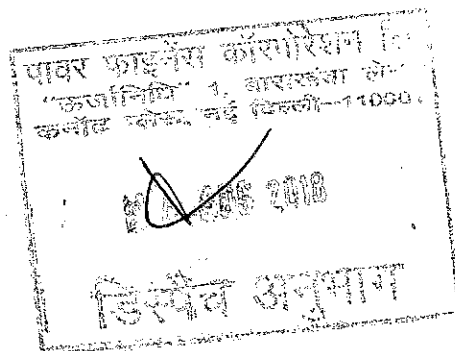 पावर फाइनेंस कॉरपोरेशन लि
"ऊर्जानिधि" 1, बाराखंबा लेन
कनॉट प्लेस, नई दिल्ली-11000
2018
डिस्पैच अनुभाग